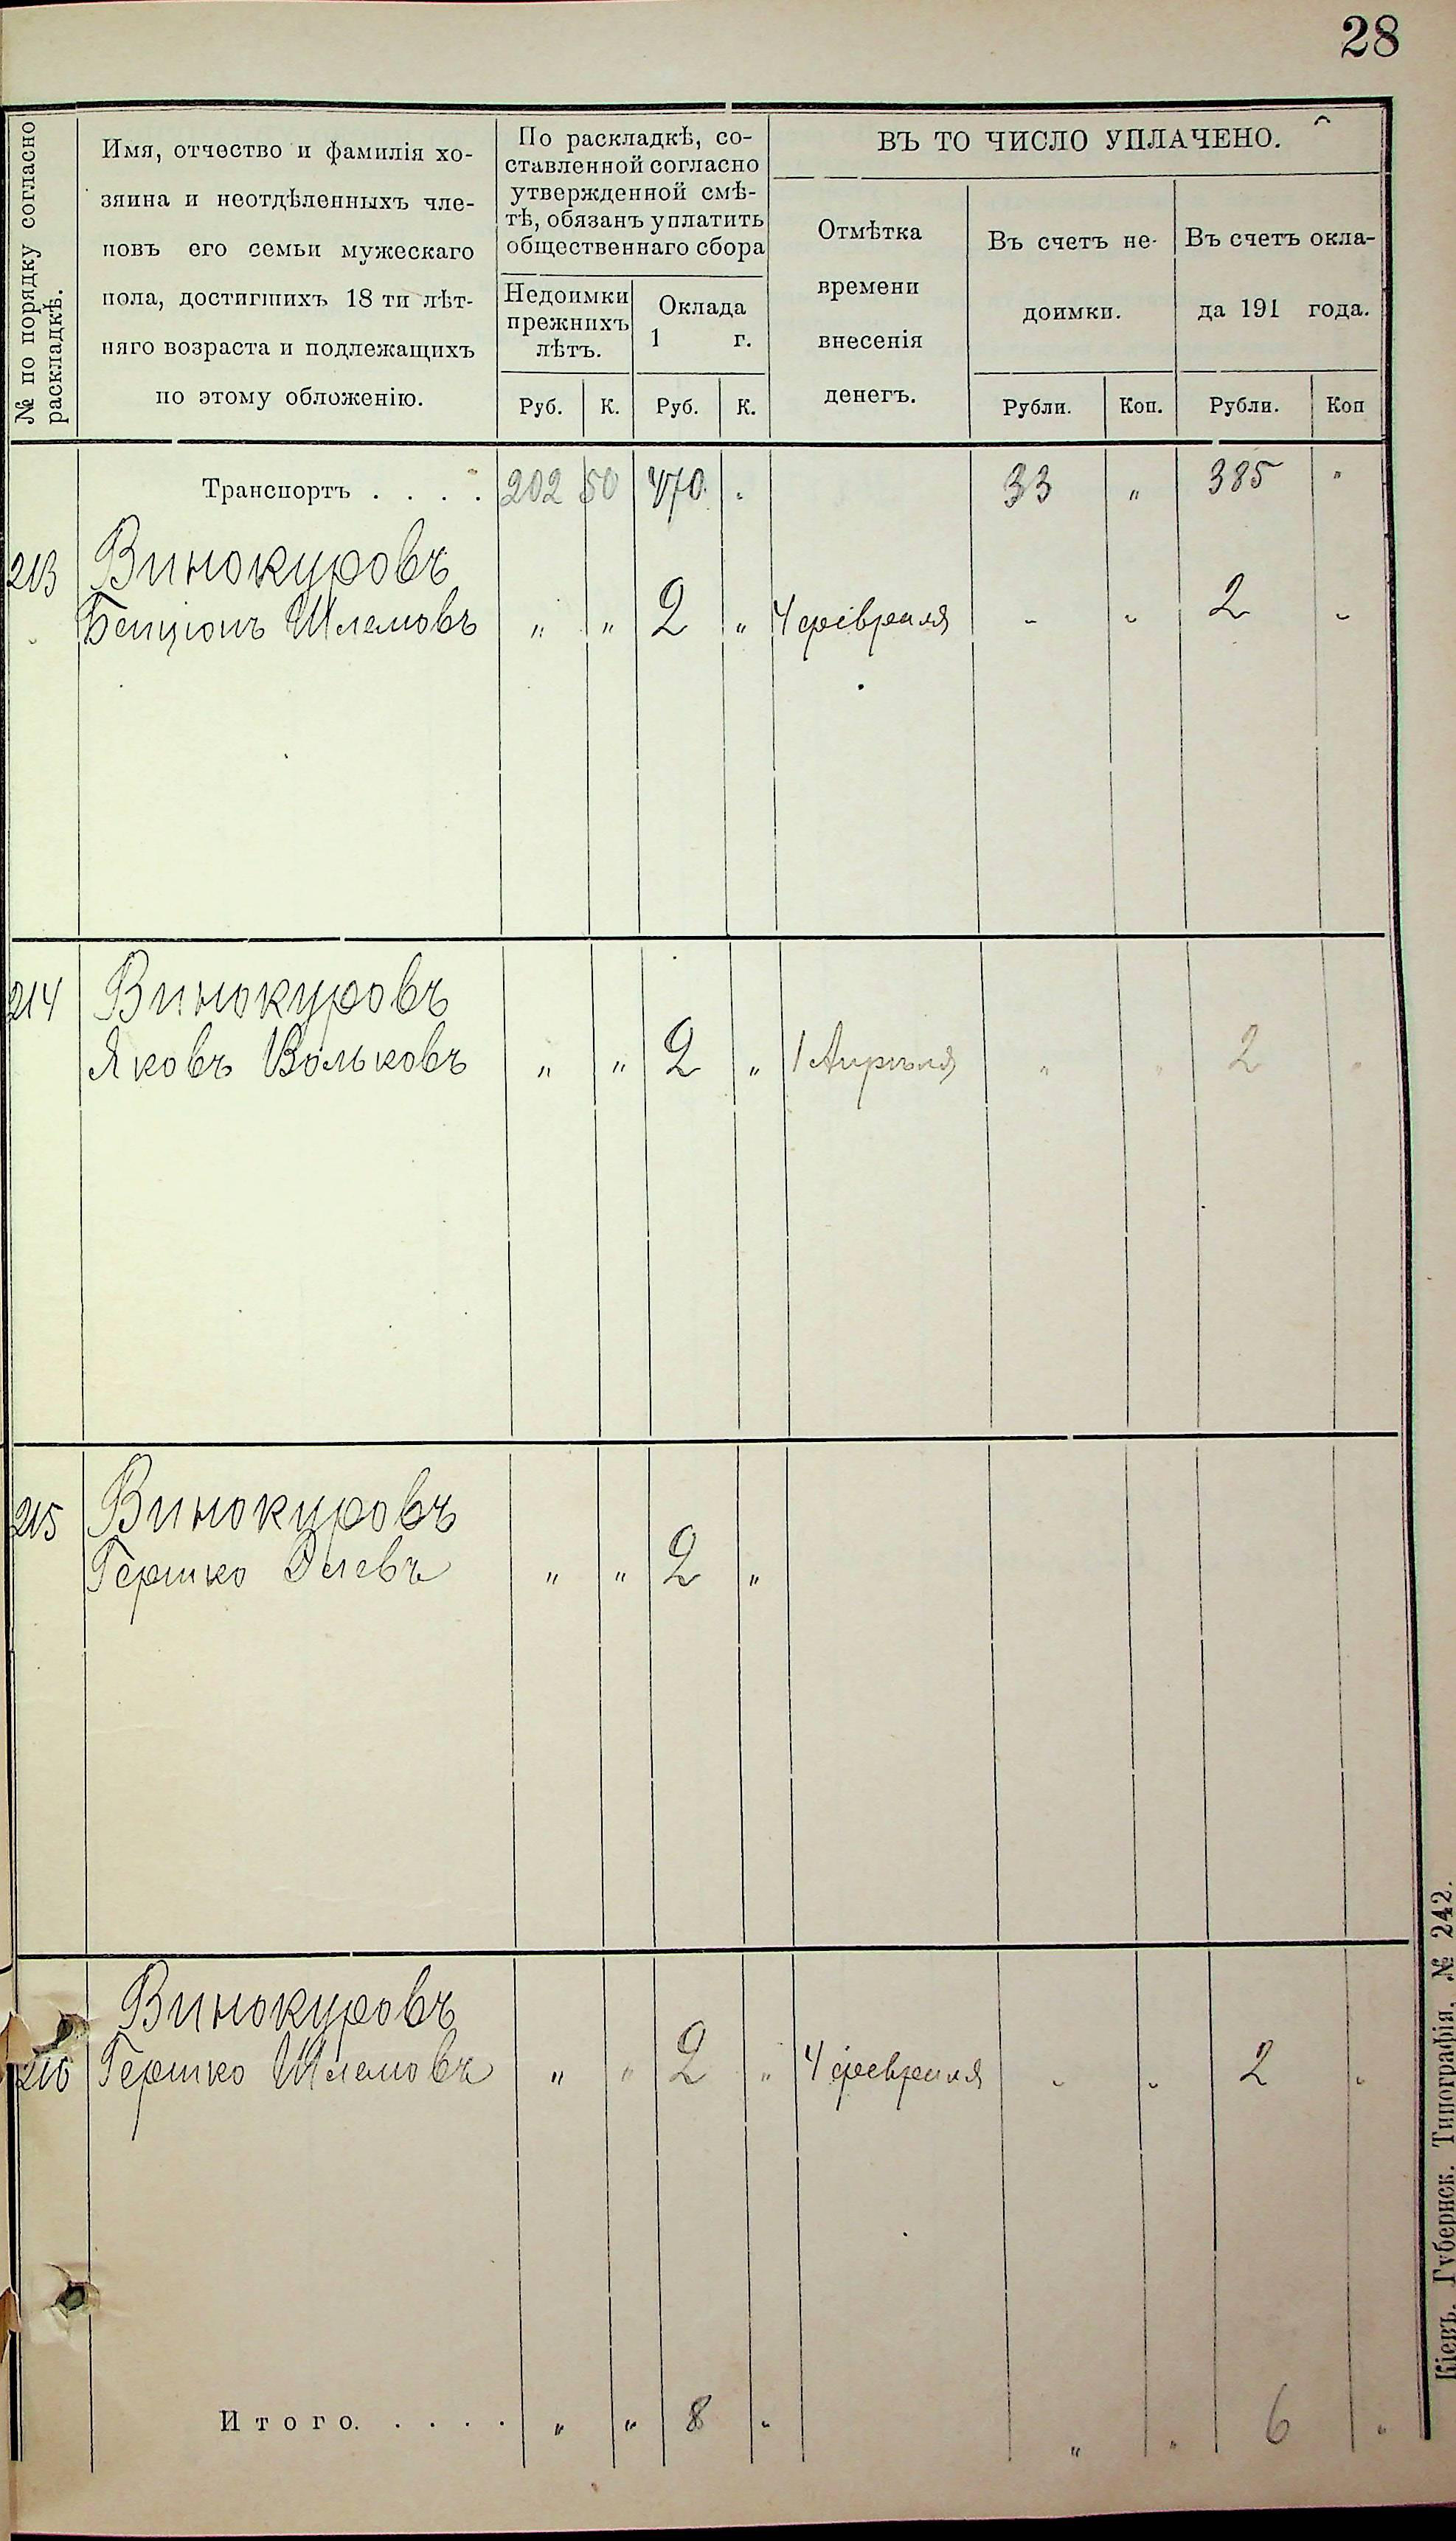 28
№ по порядку согласно
раскладкѣ.
Имя, отчество и фамилія хо-
зяина и неотдѣленныхъ чле-
новъ его семьи мужескаго
пола, достигшихъ 18 ти лѣт-
няго возраста и подлежащихъ
по этому обложенію.
По раскладкѣ, со-
ставленной согласно
утвержденной смѣ-
тѣ, обязанъ уплатить
общественнаго сбора
Недоимки
прежнихъ
лѣтъ.
Оклада
1 г.
Руб. К. Руб. К.
ВЪ ТО ЧИСЛО УПЛАЧЕНО.
Отмѣтка
времени
внесенія
денегъ.
Въ счетъ не-
доимки.
Въ счетъ окла-
да 191 года.
Рубли. Коп. Рубли. Коп
Транспортъ . . . . 202 50 470 „ 33 „ 385 „
213 Винокуровъ
Бенціонъ Шлемовъ „ „ 2 „ 4 февраля „ „ 2 „
214 Винокуровъ
Яковъ Вольковъ „ „ 2 „ 1 Апрѣля „ „ 2 „
215 Винокуровъ
Гершко Элевъ „ „ 2 „
216 Винокуровъ
Гершко Шлемовъ „ „ 2 „ 4 февраля „ „ 2 „
Итого. . . . . „ „ 8 „ „ „ 6 „
Кіевъ. Губернск. Типографія. № 242.